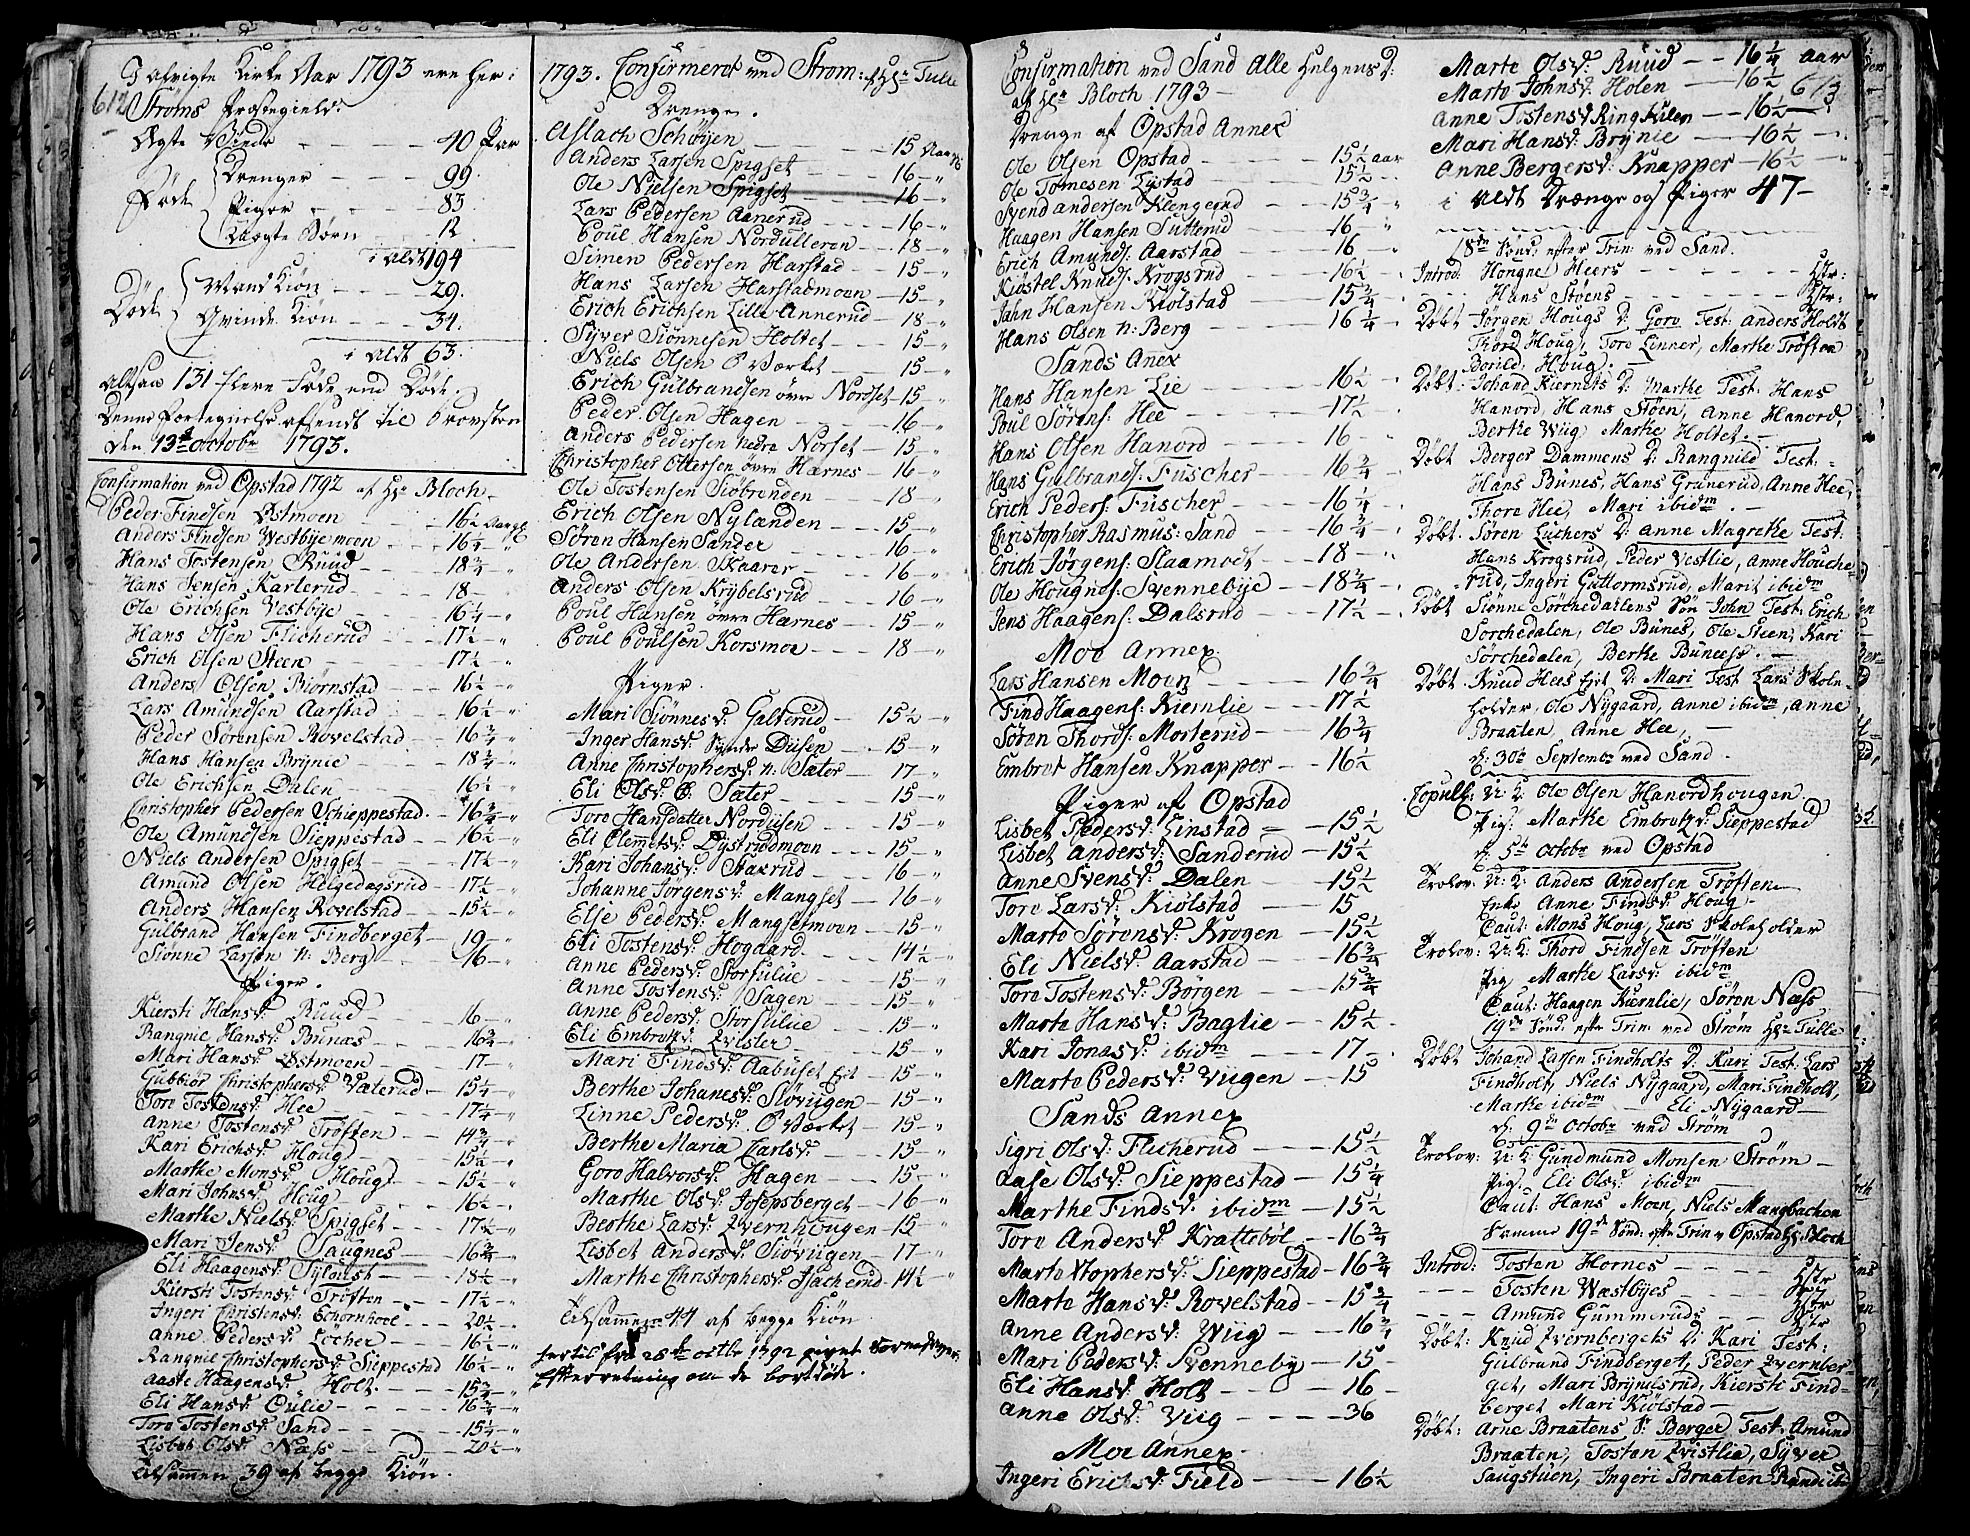 I afvigte Kirke Aar 1793 ere her i
612 Strøms Præstegield
Ægte Viede - - - 40 Par
Føde
Drenger - - - 99
Piger - - - 83
Uægte Børn - - 12
i alt 194
Døde
Mand Kiøn - - - 29.
Qvinde Kiøn - - - 34.
i alt 63.
altsaa 131 flere Føde end Døde.
Denne Fortegnelse afsendt til Provsten
den 13de octobr 1793.
Confirmation ved Opstad 1792 af Hr Bloch
Peder Findsen Østmoen - 16½ Aar gl
Anders Findsen Westbyemoen - 16¼ "
Hans Tostensen Ruud - - 18¾ "
Hans Jensen Karterud - - 18 "
Ole Erichsen Vestbye - - 16¼ "
Hans Olsen Flicherud - - 17½ "
Erich Olsen Steen - - 17½ "
Anders Olsen Biørnstad - - 16½ "
Lars Amundsen Aarstad - - 16½ "
Peder Sørensen Rovelstad - - 16¾ "
Hans Hansen Brynie - - 18¾ "
Ole Erichsen Dalen - - 16½ "
Christopher Pedersen Schieppestad - 16¾ "
Ole Amundsen Sieppestad - - 16½ "
Niels Andersen Spigset - - 17½ "
Amund Olsen Helgedagsrud - 17½ "
Anders Hansen Rovelstad - - 15½ "
Gulbrand Hansen Findberget - 19 "
Siønne Larsen n: Berg - - 16 "
Piger.
Kiersti Hansd: Ruud - - 16 "
Rangnie Hansd: Bunæs - - 16¾ "
Mari Hansd: Østmoen - - 17 "
Gubbiør Christophersd: Væterud - 15¼ "
Tore Tostensd: Hee - - 17¼ "
Anne Tostensd: Trøften - - 14¾ "
Kari Erichsd: Houg - - 15½ "
Marthe Monsd: Houg - - 15½ "
Mari Johnsd: Houg - - 16½ "
Marthe Nielsd: Spigset - - 17½ "
Mari Jensd: Saugnes - - 16¾ "
Eli Haagensd: Syloust - - 18½ "
Kiersti Tostensd: Trøften - - 17½ "
Ingeri Christensd: Schornhoel - - 20½ "
Anne Pedersd: Løcher - - 16½ "
Rangnil Christophersd: Sieppestad 16½ "
Aaste Haagensd: Holt - - 15¾ "
Eli Hansd: Oulie - - 16¾ "
Tore Tostensd: Sand - - 15¼ "
Lisbet Olsd: Næss - - 20½ "
Tilsammen 39 af begge Kiøn.
1793. Confirmeret ved Strøm: af Hr Tulle
Drenge.
Aslach Schøyen - - 15 Aar
Anders Larsen Spigset - - 16 "
Ole Nielsen Spigset - - 16 "
Lars Pedersen Aanerud - - 16 "
Poul Hansen Nordulleren - - 18 "
Simen Pedersen Harstad - - 15 "
Hans Larsen Harstadmoen - 15 "
Erich Erichsen Lille Annerud - - 18 "
Syver Siønnesen Holtet - - 15 "
Niels Olsen O Værket - - 15 "
Erich Gulbrandsen øvre Nordset - 15 "
Peder Olsen Hagen - - 16 "
Anders Pedersen nedre Norset - 15 "
Christopher Ottersen øvre Hærnes - 16 "
Ole Tostensen Siøbrenden - - 18 "
Erich Olsen Nylænden - - 15 "
Søren Hansen Sander - - 16 "
Ole Andersen Skaarer - - 16 "
Anders Olsen Krybelsrud - - 16 "
Poul Hansen øvre Hærnes - - 15 "
Poul Poulsen Korsmoe - - 18 "
Piger.
Mari Siønnesd: Galterud - 15½ "
Inger Hansd: Dusen - - 15 "
Anne Christophersd: n: Sæter - 17 "
Eli Olsd: Ø: Sæter - - 15 "
Tore Hansdatter Nordusen - - 15 "
Eli Clemetsd: Dystrudmoen - - 15 "
Kari Johansd: Staxrud - - 16 "
Johanne Jørgensd: Mangset - 16 "
Elje Pedersd: Mangsetmoen - 15 "
Eli Tostensd: Hogaard - - 14½ "
Anne Pedersd: Storfulue - - 15 "
Anne Tostensd: Sagen - - 15 "
Anne Pedersd: Storfulue - - 15 "
Eli Embretsd: Qvisler - - 15 "
Mari Findsd: Aabuset Eit - 15 "
Berthe Johanesd: Siøvigen - - 15 "
Linne Pedersd: O Værket - - 15 "
Berthe Maria Carlsd: - - 15 "
Goro Halvorsd: Hagen - - 15 "
Marthe Olsd: Josepsberget - 16 "
Berthe Larsd: Qvernhougen - 15 "
Lisbet Andersd: Siøvigen - 17 "
Marthe Christophersd: Sacherud - 14½ "
Tilsammen 44 af begge Kiøn
hertil fra 28de octbr 1792 givet
Efterretning om de bortdøde.
Confirmation ved Sand Alle Helgens D:
af Hr Bloch 1793 -
Drenge af Opstad Annex
Ole Olsen Opstad - - 15½ aar
Ole Tomesen Lystad - - 15½
Svend Andersen Klengerud - - 15¾ "
Haagen Hansen Sutterud - - 16 "
Erich Amunds: Aarstad - - 16 "
Kiøstel Knuds: Krogsrud - - 16½
Jahn Hansen Kiølstad - - 15¾
Hans Olsen n: Berg - - 16¼
Sands Anex
Hans Hansen Lie - - 16½
Poul Sørens: Hee - - 17½
Hans Olsen Hanord - - 16
Hans Gulbrands: Fuscher - - 16¾
Erich Peders: Fuscher - - 16¼
Christopher Rasmus: Sand - - 16¾
Erich Jørgens: Slaamodt - - 18
Ole Hougns: Svennebye - - 18¾
Jens Haagens: Dalsrud - - 17½
Moe Annex
Lars Hansen Moen - - 16¾
Find Haagens: Kiemlie - - 17½
Søren Thords: Morterud - - 16¾
Embret Hansen Knapper - - 16½
Piger af Opstad
Lisbet Pedersd: Linstad - - 15½
Lisbet Andersd: Sanderud - 15½
Anne Svensd: Dalen - - 15½
Tore Larsd: Kiølstad - - 15
Marte Sørensd: Krogen - - 15½
Eli Nielsd: Aarstad - - 16¾
Tore Tostensd: Børgen - - 15¾
Marte Hansd: Baglie - - 15½
Kari Jonasd: ibidm - - 17
Marte Pedersd: Viigen - - 15
Sands Annex
Sigri Olsd: Flicherud - - 15½
Aase Olsd: Sieppestad - 15¼
Marthe Findsd: ibidm - - 15½
Tore Andersd: Krattebøl - - 16¾
Marte Stophersd: Sieppestad - 16¾
Marte Hansd: Rovelstad - - 15¾
Anne Andersd: Wiig - - 16¾
Mari Pedersd: Svenneby - 15
Eli Hansd: Holt - - 16
Anne Olsd: Viig - - 36
Moe Annex
Ingeri Erichsd: Field - - 16½
Marte Olsd: Ruud - - 16¼ aar
Marte Johnsd: Holen - - 16½ 613
Anne Tostensd: Ringkilen - - 16½
Mari Hansd: Brynie - - 16½
Anne Bergersd: Knapper - 16½
i alt Drænge og Piger 47-
18de Sønd: efter Trin: ved Sand.
Introd: Hongne Heers - - Hstr:
Hans Støens - - Hstr:
Døbt Jørgen Hougs D: Goro Test: Anders Holdt
Thord Houg, Tore Linner, Marthe Trøften
Borild Houg.
Døbt: Johand Kiernets D: Marthe Test: Hans
Hanord, Hans Støen, Anne Hanord,
Berthe Wiig Marthe Holtet. -
Døbt Berger Dammens D: Rangnild Test:
Hans Bunes, Hans Granerud, Anne Hee,
Thore Hee, Mari ibidm. -
Døbt. Søren Luchers D: Anne Magrethe Test:
Hans Krogsrud, Peder Vestlie, Anne Houche-
rud, Ingeri Guttormsrud, Marit ibidm
Døbt Siønne Sørchedalens Søn John Test: Erich
Sørchedalen, Ole Bunes, Ole Steen, Kari
Sørchedalen, Berthe Buness. -
Døbt Knud Hees D: Mari Test Lars Skole-
holder, Ole Nygaard, Anne ibidm, Anne
Braaten, Anne Hee,
d: 30te Septembr ved Sand.
Copull: U: K: Ole Olsen Hanordhougen
Pig: Marthe Embretsd: Sieppestad
d: 5te octobr ved Opstad
Trolov: U: K: Anders Andersen Trøften
Enke Anne Findsd: Houg
Caut: Mons Houg, Lars Skoleholder
Trolov: U: K: Thord Findsen Trøften
Pig: Marthe Larsd: ibidm
Caut: Haagen Kiernlie, Søren Næss
19de Sønd: efter Trin: ved Strøm Hr Tulle
Døbt Johand Larsen Findholts D: Kari Test: Lars
Findholt, Niels Nygaard, Mari Findholt,
Marthe ibidm Eli Nygaard
d: 9de octobr ved Strøm
Trolov: U: K: Gundmund Monsen Strøm -
Pig: Eli Olsd: ibidm
Caut: Hans Moen, Niels Mangbachen
Samme 19de Sønd: efter Trin: v Opstad Hr Bloch
Introd: Tosten Hornes - - Hstr
- - - Tosten Wæstbyes - - Hstr
- - - Amund Gummeruds - - Hstr
Døbt: Knud Qvernbergets D: Kari Test:
Gulbrand Findberget, Peder Qvernber-
get, Mari Brynilsrud, Kiersti Find-
berget Mari Kiølstad -
Døbt: Arne Braatens S: Berger Test: Amund
Braaten, Tosten Qvistlie, Syver
Saugstuen, Ingeri Braaten Randi ibm